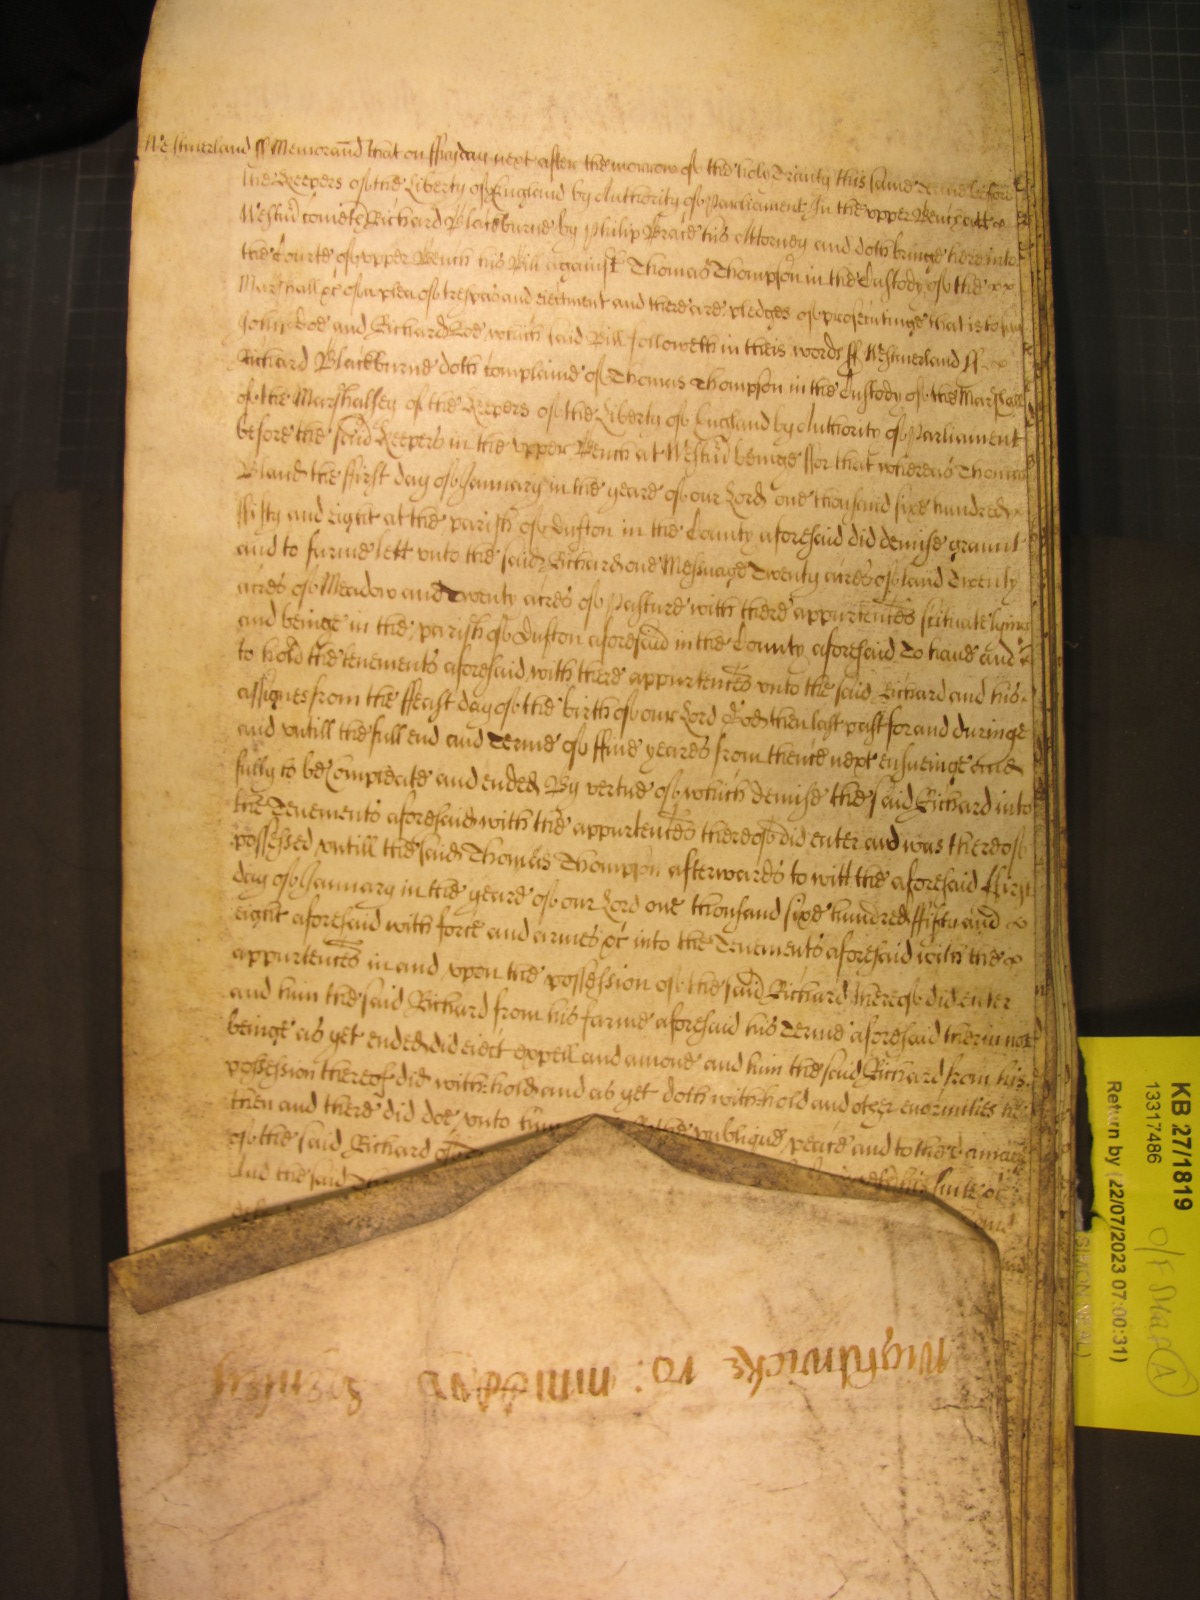 Westmerland ss Memorand that on ffryday next after the morrow of the holy Trinity this same Terme before
the Keepers of the Liberty of England by Authority of Parliament In the upper Bench att
Westm cometh Richard Blackburne by Philip Brace his Attorney and doth bringe here into
the Courte of upper Bench his Bill against Thomas Thompson in the Custody of the
Marshall &c of a plea of trespas and eiectment and there are pledges of prosecutinge that is to say
John Doe and Richard Roe which said Bill followeth in theis words ss Westmerland ss
Richard Blackburne doth complaine of Thomas Thompson in the Custody of the Marshall
of the Marshallsey of the Keepers of the Liberty of England by Authority of Parliament
before the said Keepers in the upper Bench at Westm beinge ffor that whereas Thomas
Bland the ffirst day of January in the yeare of our Lord one thousand sixe hundred
ffifty and eight at the parish of Dufton in the County aforesaid did demise graunt
and to farme lett unto the said Richard one Messuage Twenty acres of land Twenty
acres of Meadow and Twenty acres of Pasture with there appurtences scituate lyinge
and beinge in the parish of Dufton aforesaid in the County aforesaid To have and
to hold the tenements aforesaid with there appurtences unto the said Richard and his
assignes from the ffeast day of the birth of our Lord God then last past for and duringe
and untill the full end and Terme of ffive yeares from thence next ensueinge and
fully to be Compleate and ended By vertue of which demise the said Richard into
the Tenements aforesaid with the appurtences thereof did enter and was thereof
possessed untill the said Thomas Thompson afterwards to witt the aforesaid ffirst
day of January in the yeare of our Lord one thousand sixe hundred ffifty and
eight aforesaid with force and armes &c into the Tenements aforesaid with the
appurtences in and upon the possession of the said Richard thereof did enter
and him the said Richard from his farme aforesaid his Terme aforesaid therin not
beinge as yet ended did eiect expell and amove and him the said Richard from his
possession thereof did with-hold and as yet doth with-hold and other enormities he
then and there did doe unto him publique peace and to the damage
of the said Richard his suite &c
And the said
KB 27/1819
13317486
Return by (22/07/2023 07:00:31)
SIMON NEAL)
O/F Staff A